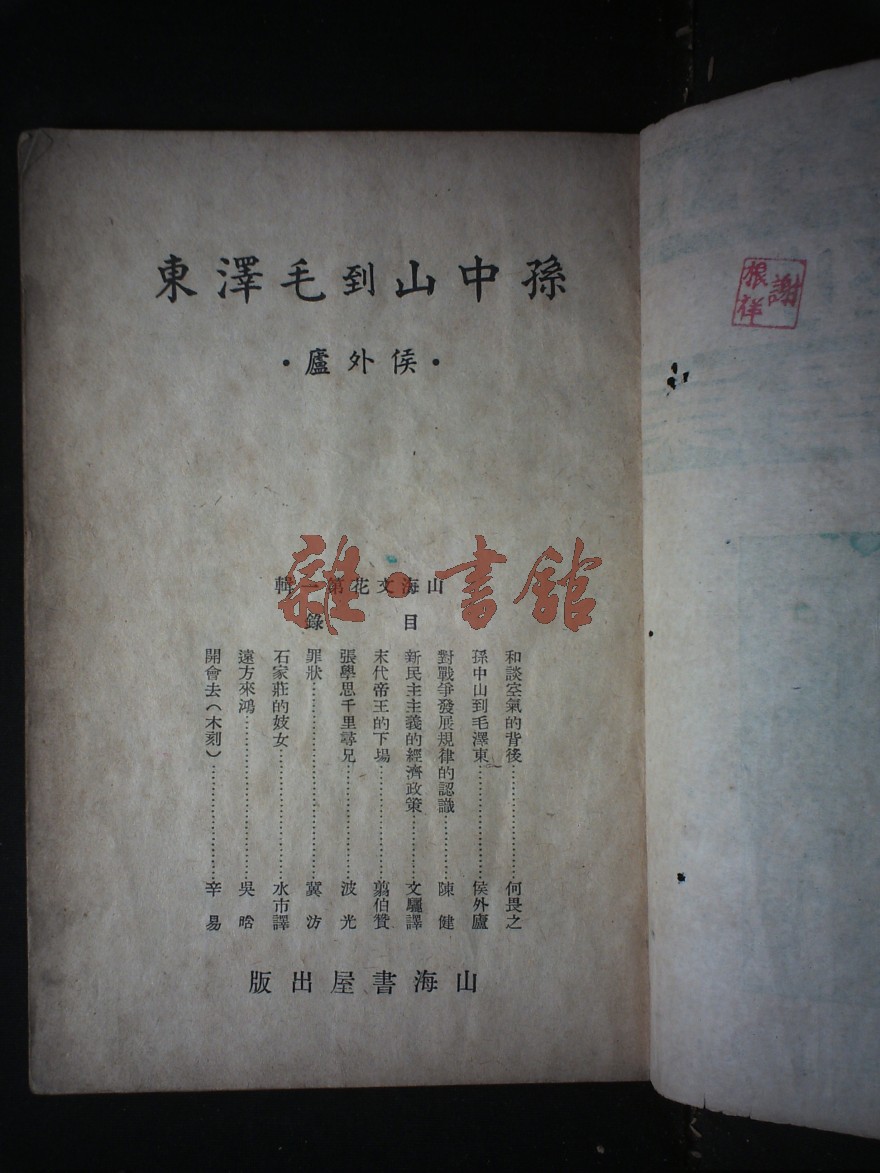 孫中山到毛澤東
·侯外廬·
山海文花第一輯
目錄
和談空氣的背後……………何畏之
孫中山到毛澤東……………侯外廬
對戰爭發展規律的認識……陳健
新民主主義的經濟政策……文驪譯
末代帝王的下場……………翦伯贊
張學思千里尋兄……………波光
罪狀…………………………冀汸
石家莊的妓女………………水市譯
遠方來鴻……………………吳晗
開會去（木刻）……………辛易
山海書屋出版
謝根祥
雜·書館